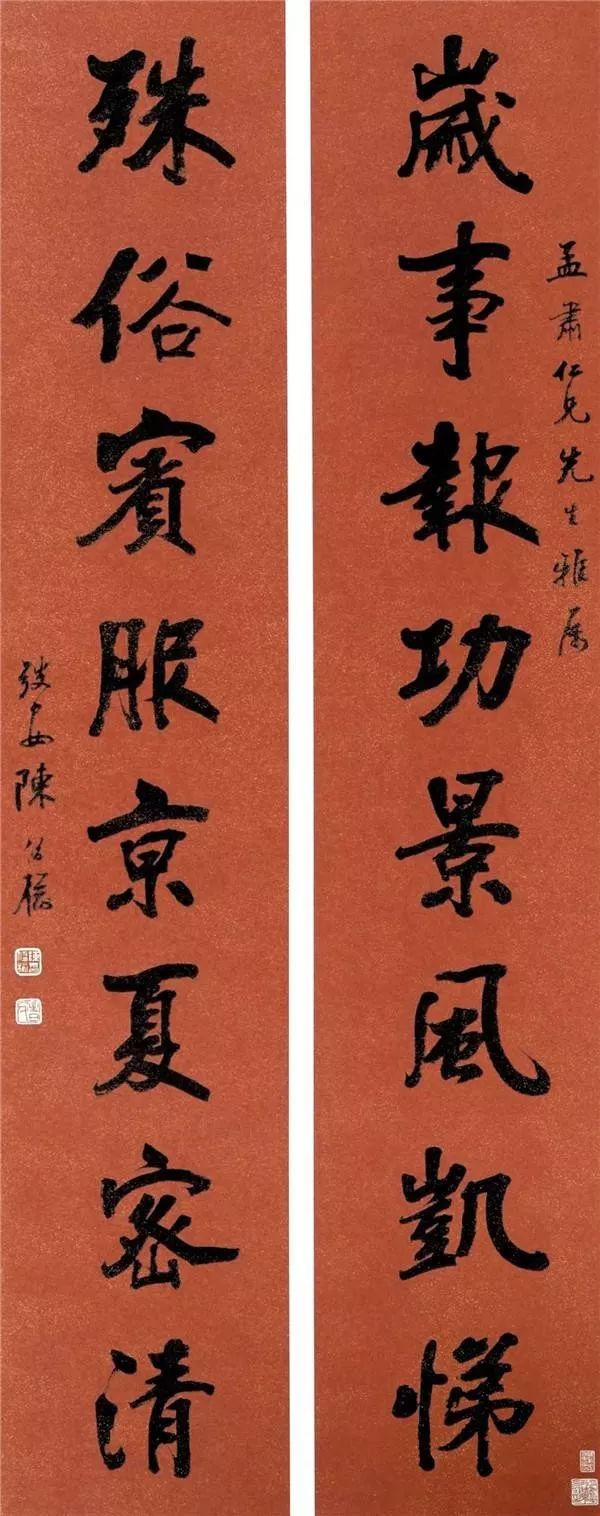 孟肅仁兄先生雅屬
歲事報功景風凱悌
殊俗賓服京夏密清
陳